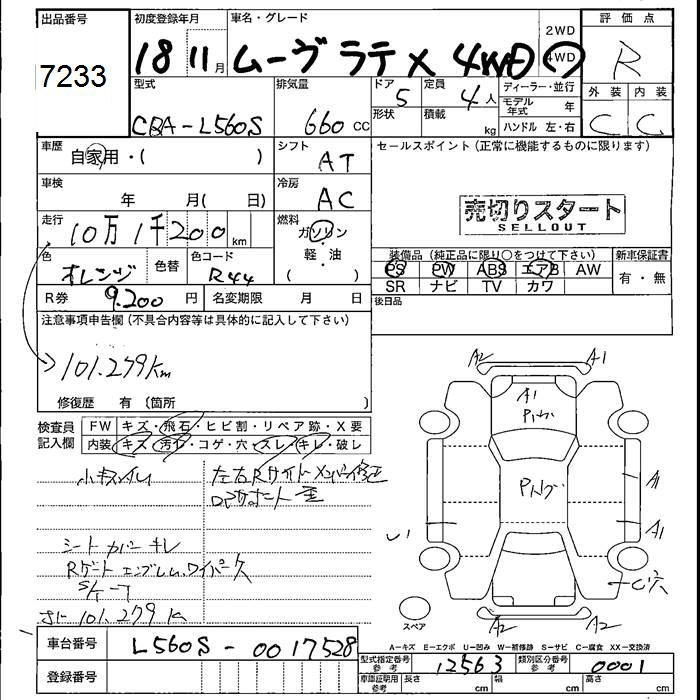 出品番号
7233
初度登録年月
18 11月
車名・グレード
ムーヴ ラテ X 4WD
2WD
4WD
評価点
R
外装 内装
C C
型式
CBA-L560S
排気量
660 cc
ドア
5
形状
定員
4人
積載
kg
ディーラー・並行
モデル年式 年
ハンドル 左・右
車歴
自家用・( )
シフト
AT
セールスポイント(正常に機能するものに限ります)
車検
年 月( 日)
冷房
AC
売切りスタート
SELLOUT
走行
10万1千200 km
燃料
ガソリン
・
軽・油
( )
色
オレンジ
色替
色コード
R44
装備品(純正品に限り○をつけて下さい)
PS PW ABS エアB AW
SR ナビ TV カワ
新車保証書
有・無
R券 9.200 円
名変期限 月 日
後日品
注意事項申告欄(不具合内容等は具体的に記入して下さい)
101.279km
修復歴 有(箇所 )
検査員
記入欄
FW キズ・飛石・ヒビ割・リペア跡・X要
内装 キズ・汚れ・コゲ・穴・スレ・キレ・破レ
シートカバーキレ
Rゲートエンブレム.ワイパー欠
101.279k
A2 A1
A1
A1
A1
A2 A2
スペア
A-キズ E-エクボ U-凹み W-補修跡 S-サビ C-腐食 XX-交換済
車台番号
L560S-0017528
登録番号
型式指定番号
参考
12563
類別区分番号
参考
0001
車庫証明用
参考
長さ cm
幅 cm
高さ cm